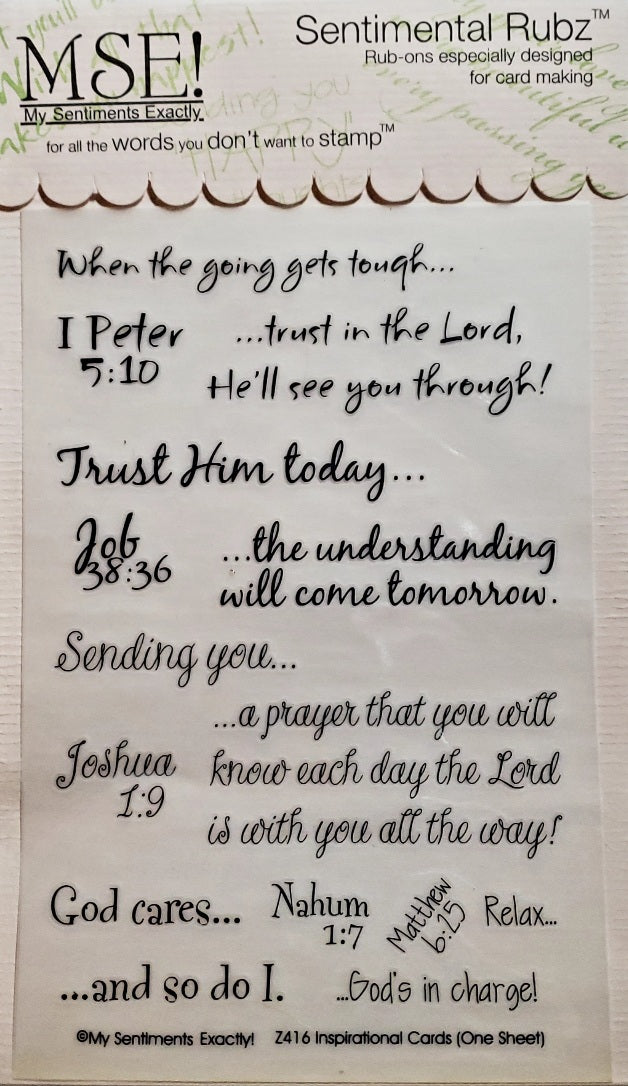 MSE!
My Sentiments Exactly.
for all the words you don't want to stamp™
Sentimental Rubz™
Rub-ons especially designed
for card making
When the going gets tough...
I Peter
5:10
...trust in the Lord,
He'll see you through!
Trust Him today...
Job
38:36
...the understanding
will come tomorrow.
Sending you...
...a prayer that you will
Joshua
1:9
know each day the Lord
is with you all the way!
God cares...
Nahum
1:7
Matthew
6:25
Relax...
...and so do I.
...God's in charge!
©My Sentiments Exactly! Z416 Inspirational Cards (One Sheet)